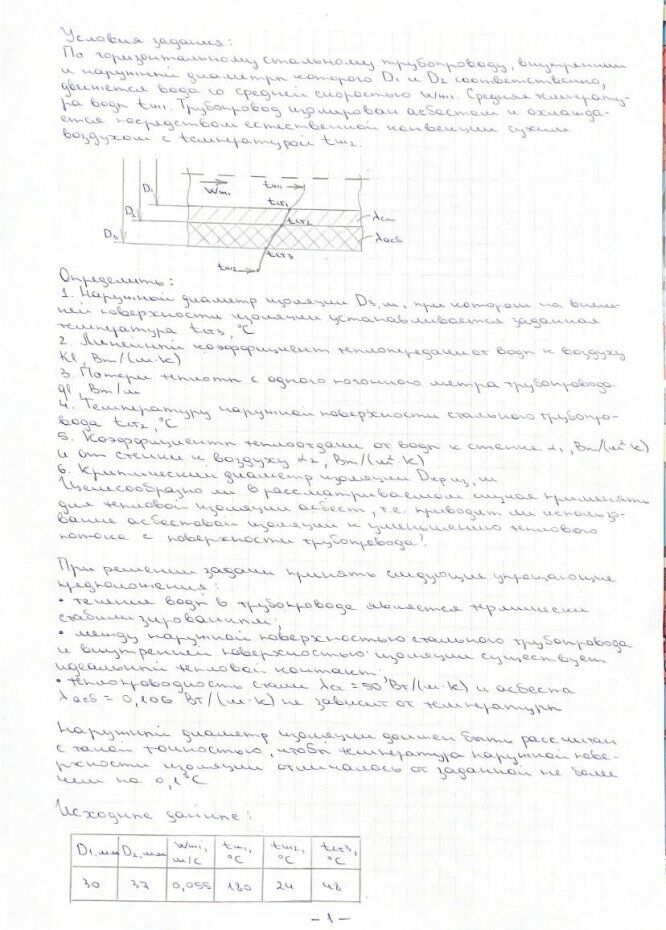 Условия задания:
По горизонтальному стальному трубопроводу, внутренний
и наружный диаметры которого D1 и D2 соответственно,
движется вода со средней скоростью wж1. Средняя температу-
ра воды tж1. Трубопровод изолирован асбестом и охлажда-
ется посредством естественной конвекции сухим
воздухом с температурой tж2.
D1
D2
D3
wж1
tж1
tст1
tст2
tст3
tж2
λст
λасб
Определить:
1. Наружный диаметр изоляции D3, м, при котором на внеш-
ней поверхности изоляции устанавливается заданная
температура tст3, °C
2. Линейный коэффициент теплопередачи от воды к воздуху
Kl, Вт/(м·К)
3. Потери теплоты с одного погонного метра трубопровода
ql, Вт/м
4. Температуру наружной поверхности стального трубопро-
вода tст2, °C
5. Коэффициенты теплоотдачи от воды к стенке α1, Вт/(м²·К)
и от стенки к воздуху α2, Вт/(м²·К)
6. Критический диаметр изоляции Dкр.из, м
Целесообразно ли в рассматриваемом случае применять
для тепловой изоляции асбест, т.е. приводит ли использо-
вание асбестовой изоляции к уменьшению теплового
потока с поверхности трубопровода?
При решении задачи принять следующие упрощающие
предположения:
• течение воды в трубопроводе является термически
стабилизированным;
• между наружной поверхностью стального трубопровода
и внутренней поверхностью изоляции существует
идеальный тепловой контакт;
• теплопроводность стали λст = 50 Вт/(м·К) и асбеста
λасб = 0,106 Вт/(м·К) не зависит от температуры
Наружный диаметр изоляции должен быть рассчитан
с такой точностью, чтобы температура наружной пове-
рхности изоляции отличалась от заданной не более
чем на 0,1°C
Исходные данные:
D1, мм D2, мм wж1, м/с tж1, °C tж2, °C tст3, °C
30 37 0,055 180 24 48
- 1 -